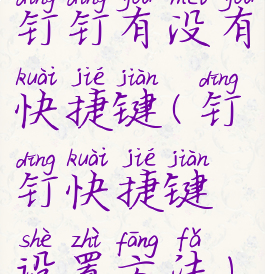 dīng dīng yǒu méi yǒu
钉钉有没有
kuài jié jiàn dīng
快捷键(钉
dīng kuài jié jiàn
钉快捷键
shè zhì fāng fǎ
设置方法)